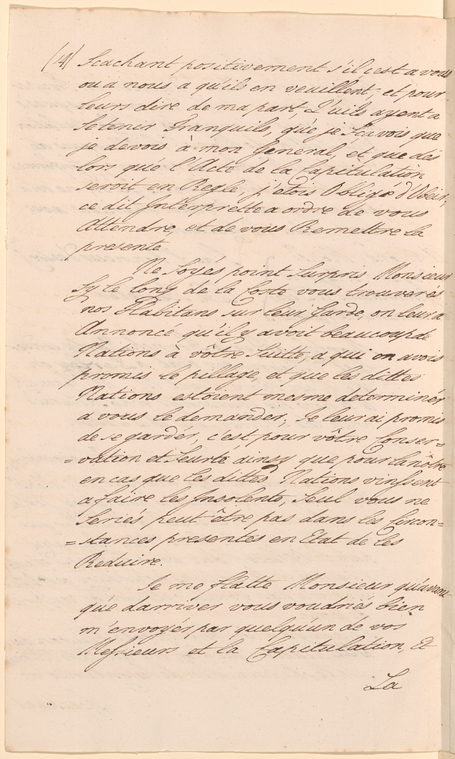 (4) Scachant positivement s'il c'est a vous
ou a nous a qu'ils en veuillent, et pour
leurs dire de ma part, qu'ils ayent a
se tenir Tranquils, que je sçavois que
je devois à mon General, et que dès
lors que l'Acte de la Capitulation
seroit en Regle, j'etois Obligé d'Obeir,
ce dit Interprette a ordre de vous
Attendre, et de vous Remettre la
presente
Ne soyés point Surpris Monsieur
Sy le long de la Coste vous trouverés
nos Habitans sur leur garde, on leur a
Annoncé qu'il y avoit beaucoup de
Nations à vôtre Suitte, a qui on avois
promis le pillage, et que les dittes
Nations estoient mesme determinér
a vous le demander, Je leur ai promis
de se gardér, c'est pour vôtre Conser=
=vation et Seurte ainsy que pour la nôtre
en cas que les dittes Nations vinssent
a faire les Insolents, Seul vous ne
Seriés peut être pas dans les Circon=
=stances presentes en Etat de les
Reduire.
Je me flatte Monsieur qu'avant
que d'arriver vous voudriés bien
m'envoyér par quelqu'un de vos
Messieurs et la Capitulation, Et
La